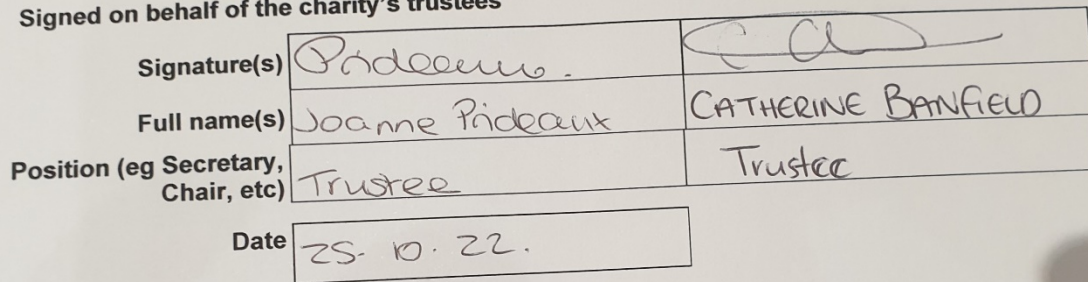 Signed on behalf of the charity's trustees
Signature(s) Prideaux.
Full name(s) Joanne Prideaux CATHERINE BANFIELD
Position (eg Secretary, Chair, etc) Trustee Trustee
Date 25. 10. 22.